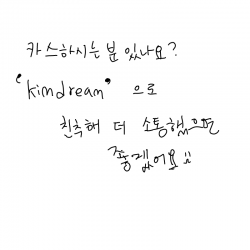 카스하시는 분 있나요?
"kimdream" 으로
친추해 더 소통했으면
좋겠어요 ü